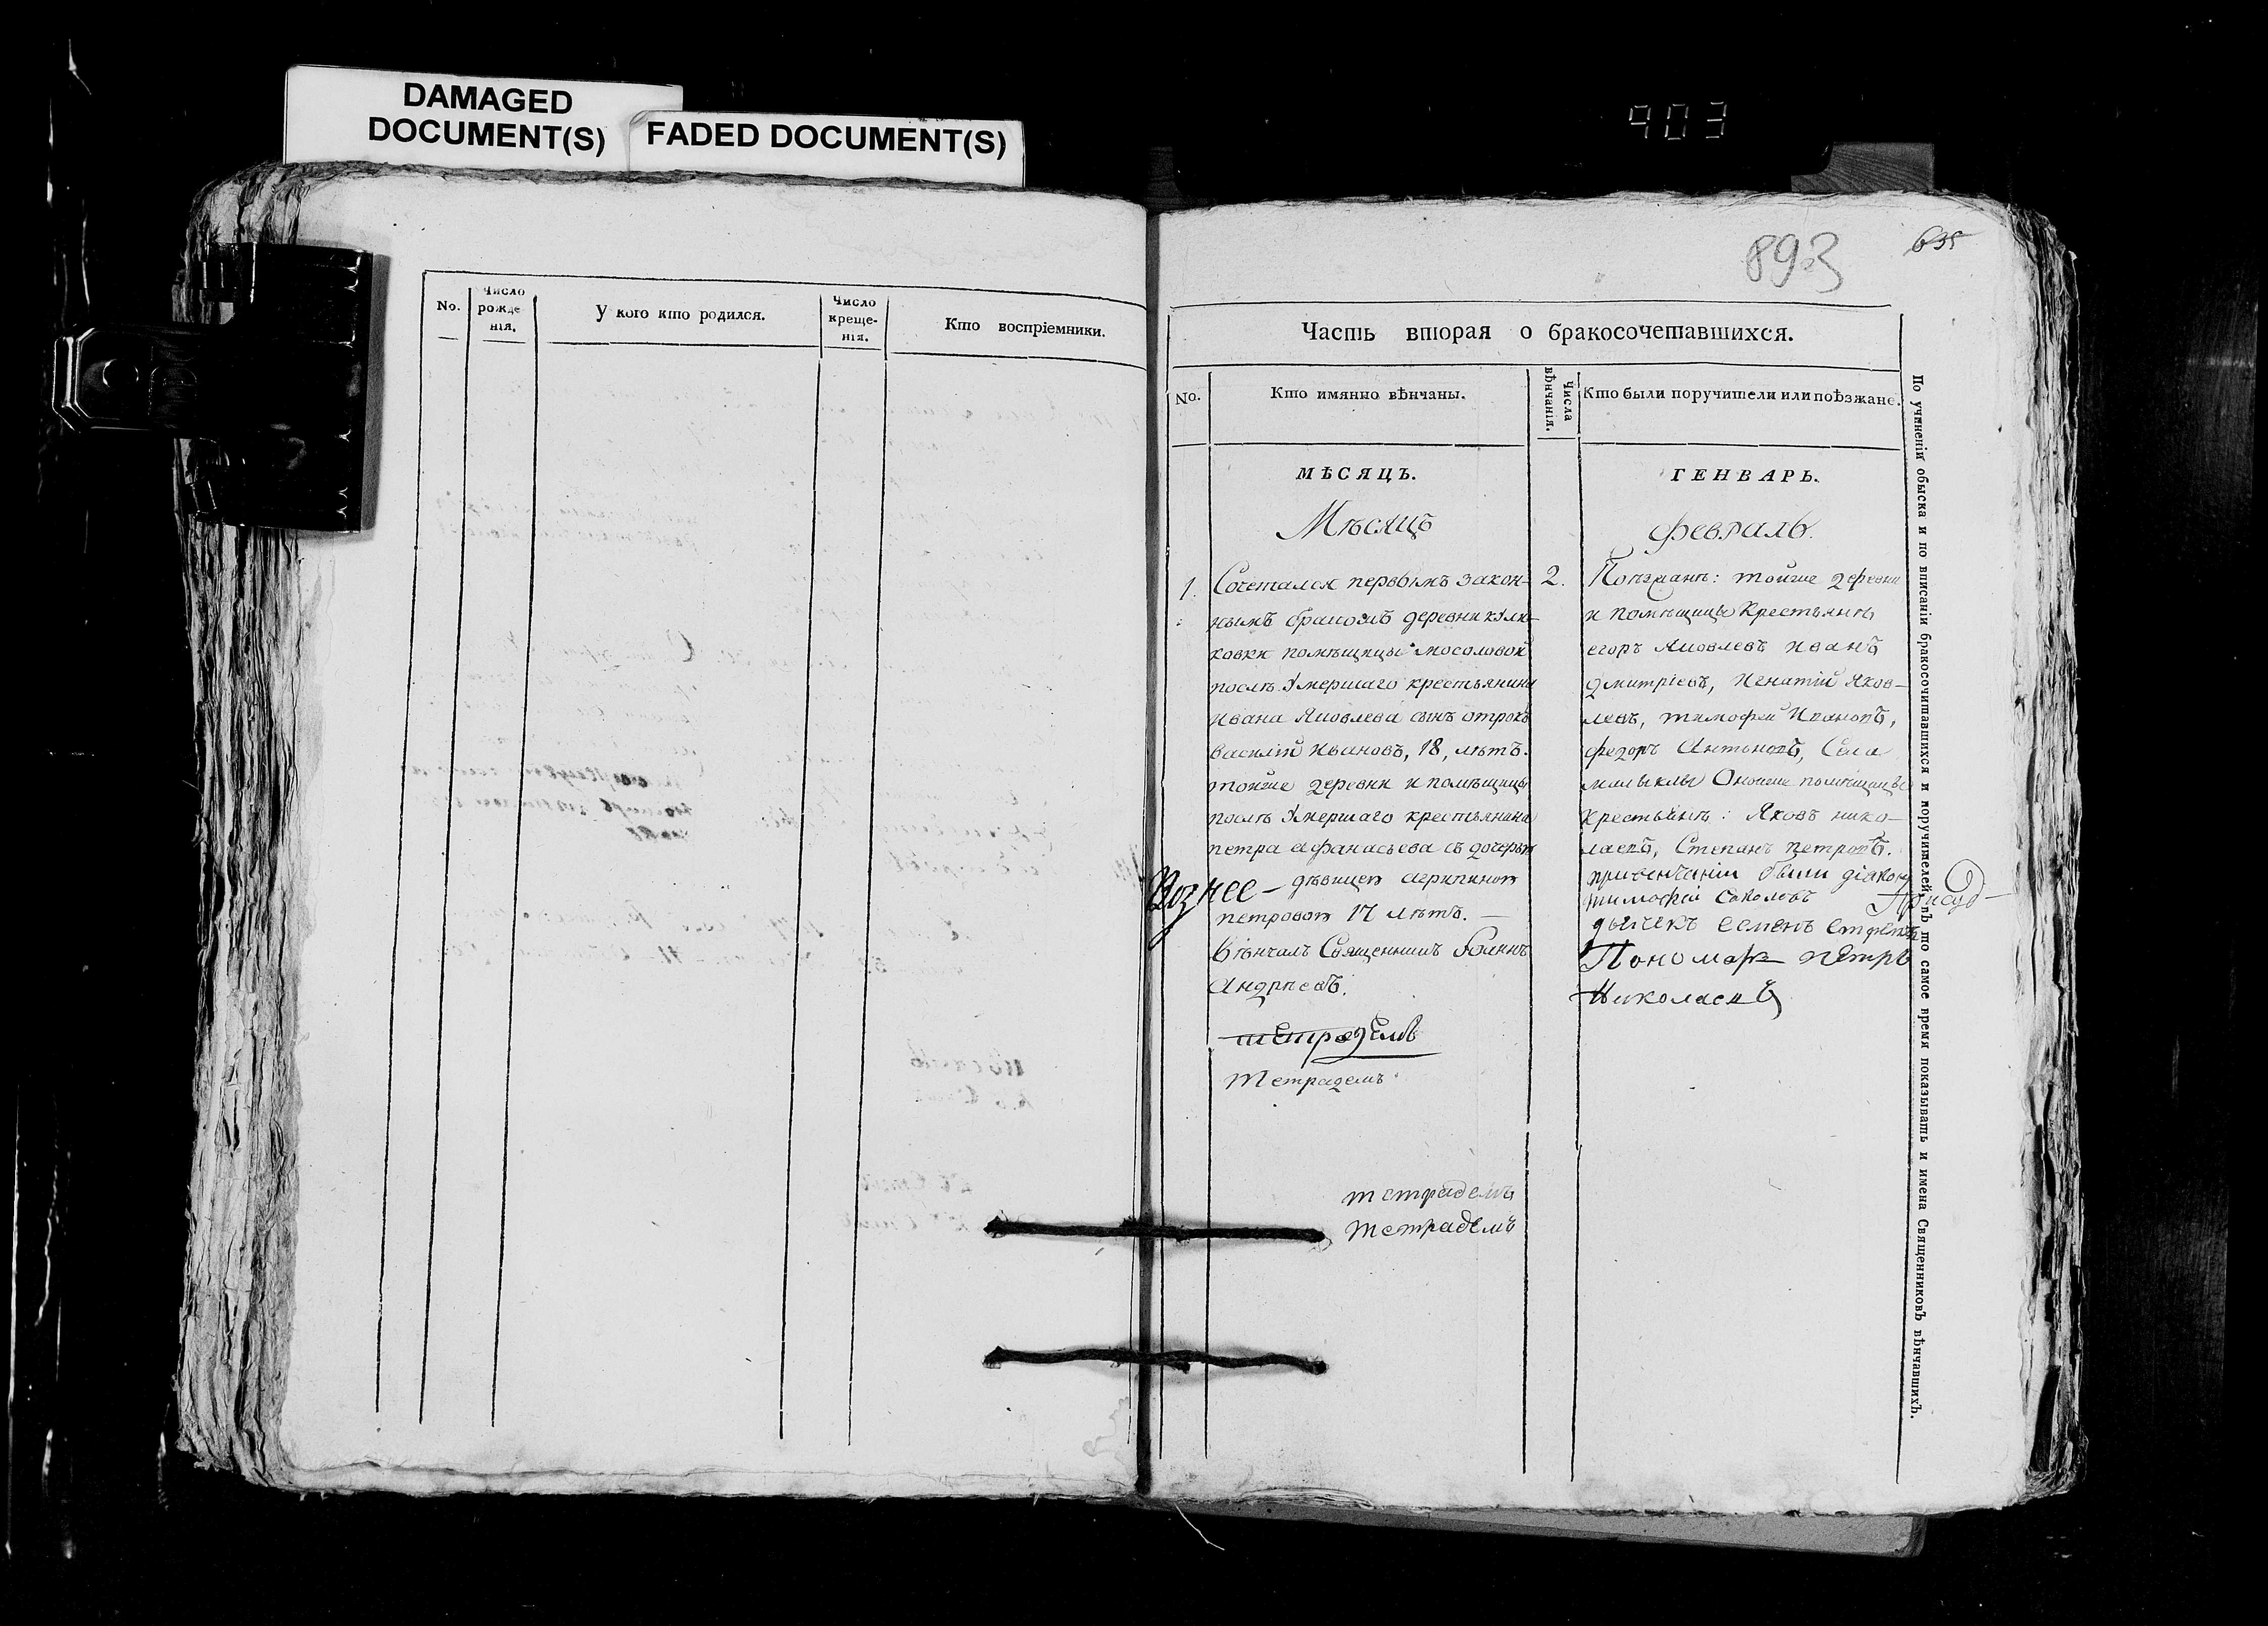 DAMAGED
DOCUMENT(S)
FADED DOCUMENT(S)
903
No.
Число
рожде
нія.
У кого кто родился.
Число
креще-
нія.
Кто воспріемники.
893
635
Часть вторая о бракосочетавшихся.
No.
Кто имянно вѣнчаны.
Числа
вѣнчанія.
Кто были поручители или поѣзжане.
МѢСЯЦЪ.
ГЕНВАРЬ.
Мѣсяцъ
февраль.
1.
Сочетался первымъ закон-
нымъ бракомъ деревни кули-
ковки помѣщицы мосоловой
послѣ умершаго крестьянина
ивана Яковлева сынъ отрокъ
василій ивановъ, 18, лѣтъ.
тойже деревни и помѣщицы
послѣ умершаго крестьянина
петра афанасьева съ дочерью
дѣвицею агрипиною
петровою 17 лѣтъ. —
вѣнчалъ Священникъ Іоаннъ
Андреевъ.
Вознес-
тетрадемъ
Тетрадемъ
тетрадемъ
тетрадемъ
2.
Поѣзжанѣ: тойже деревни
и помѣщицы крестьянѣ
егоръ Яковлевъ иванъ
дмитріевъ, игнатій яков-
левъ, тимофей Ивановъ,
федоръ Антоновъ, Села
малыклы Оноиже помѣщицы
крестьянѣ: Яковъ нико-
лаевъ, Степанъ петровъ.
привенчаніи были діаконъ
тимофей Соколовъ
дьячекъ семенъ
Пономарь петръ
Николаевъ
Присуд-
По учиненіи обыска и по вписаніи бракосочитавшихся и поручителей, въ то самое время показывать и имена Священниковъ вѣнчавшихъ.